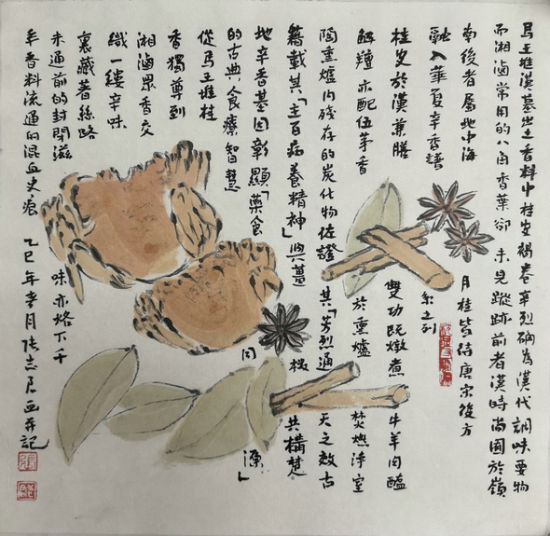 馬王堆漢墓出土香料中桂皮褐卷辛烈確為漢代調味要物
而湘滷常用的八角香葉卻未見蹤跡前者漢時尚囿於嶺
南後者屬地中海月桂皆待唐宋後方
融入華夏辛香譜系之列
桂皮於漢兼膳雙功既燉煮牛羊肉醢
解羶亦配伍茅香於熏爐焚燎淨室
陶熏爐內殘存的炭化物佐證其「芳烈通天之效古
籍載其「主百病養精神」與薑椒共構楚
地辛香基因彰顯「藥食同源」
的古典食療智慧
從馬王堆桂
香獨尊到
湘滷眾香交
織一縷辛味
裏藏著絲路
未通前的封閉滋味亦烙下千
年香料流通的混血史痕乙巳年月張志畫并記